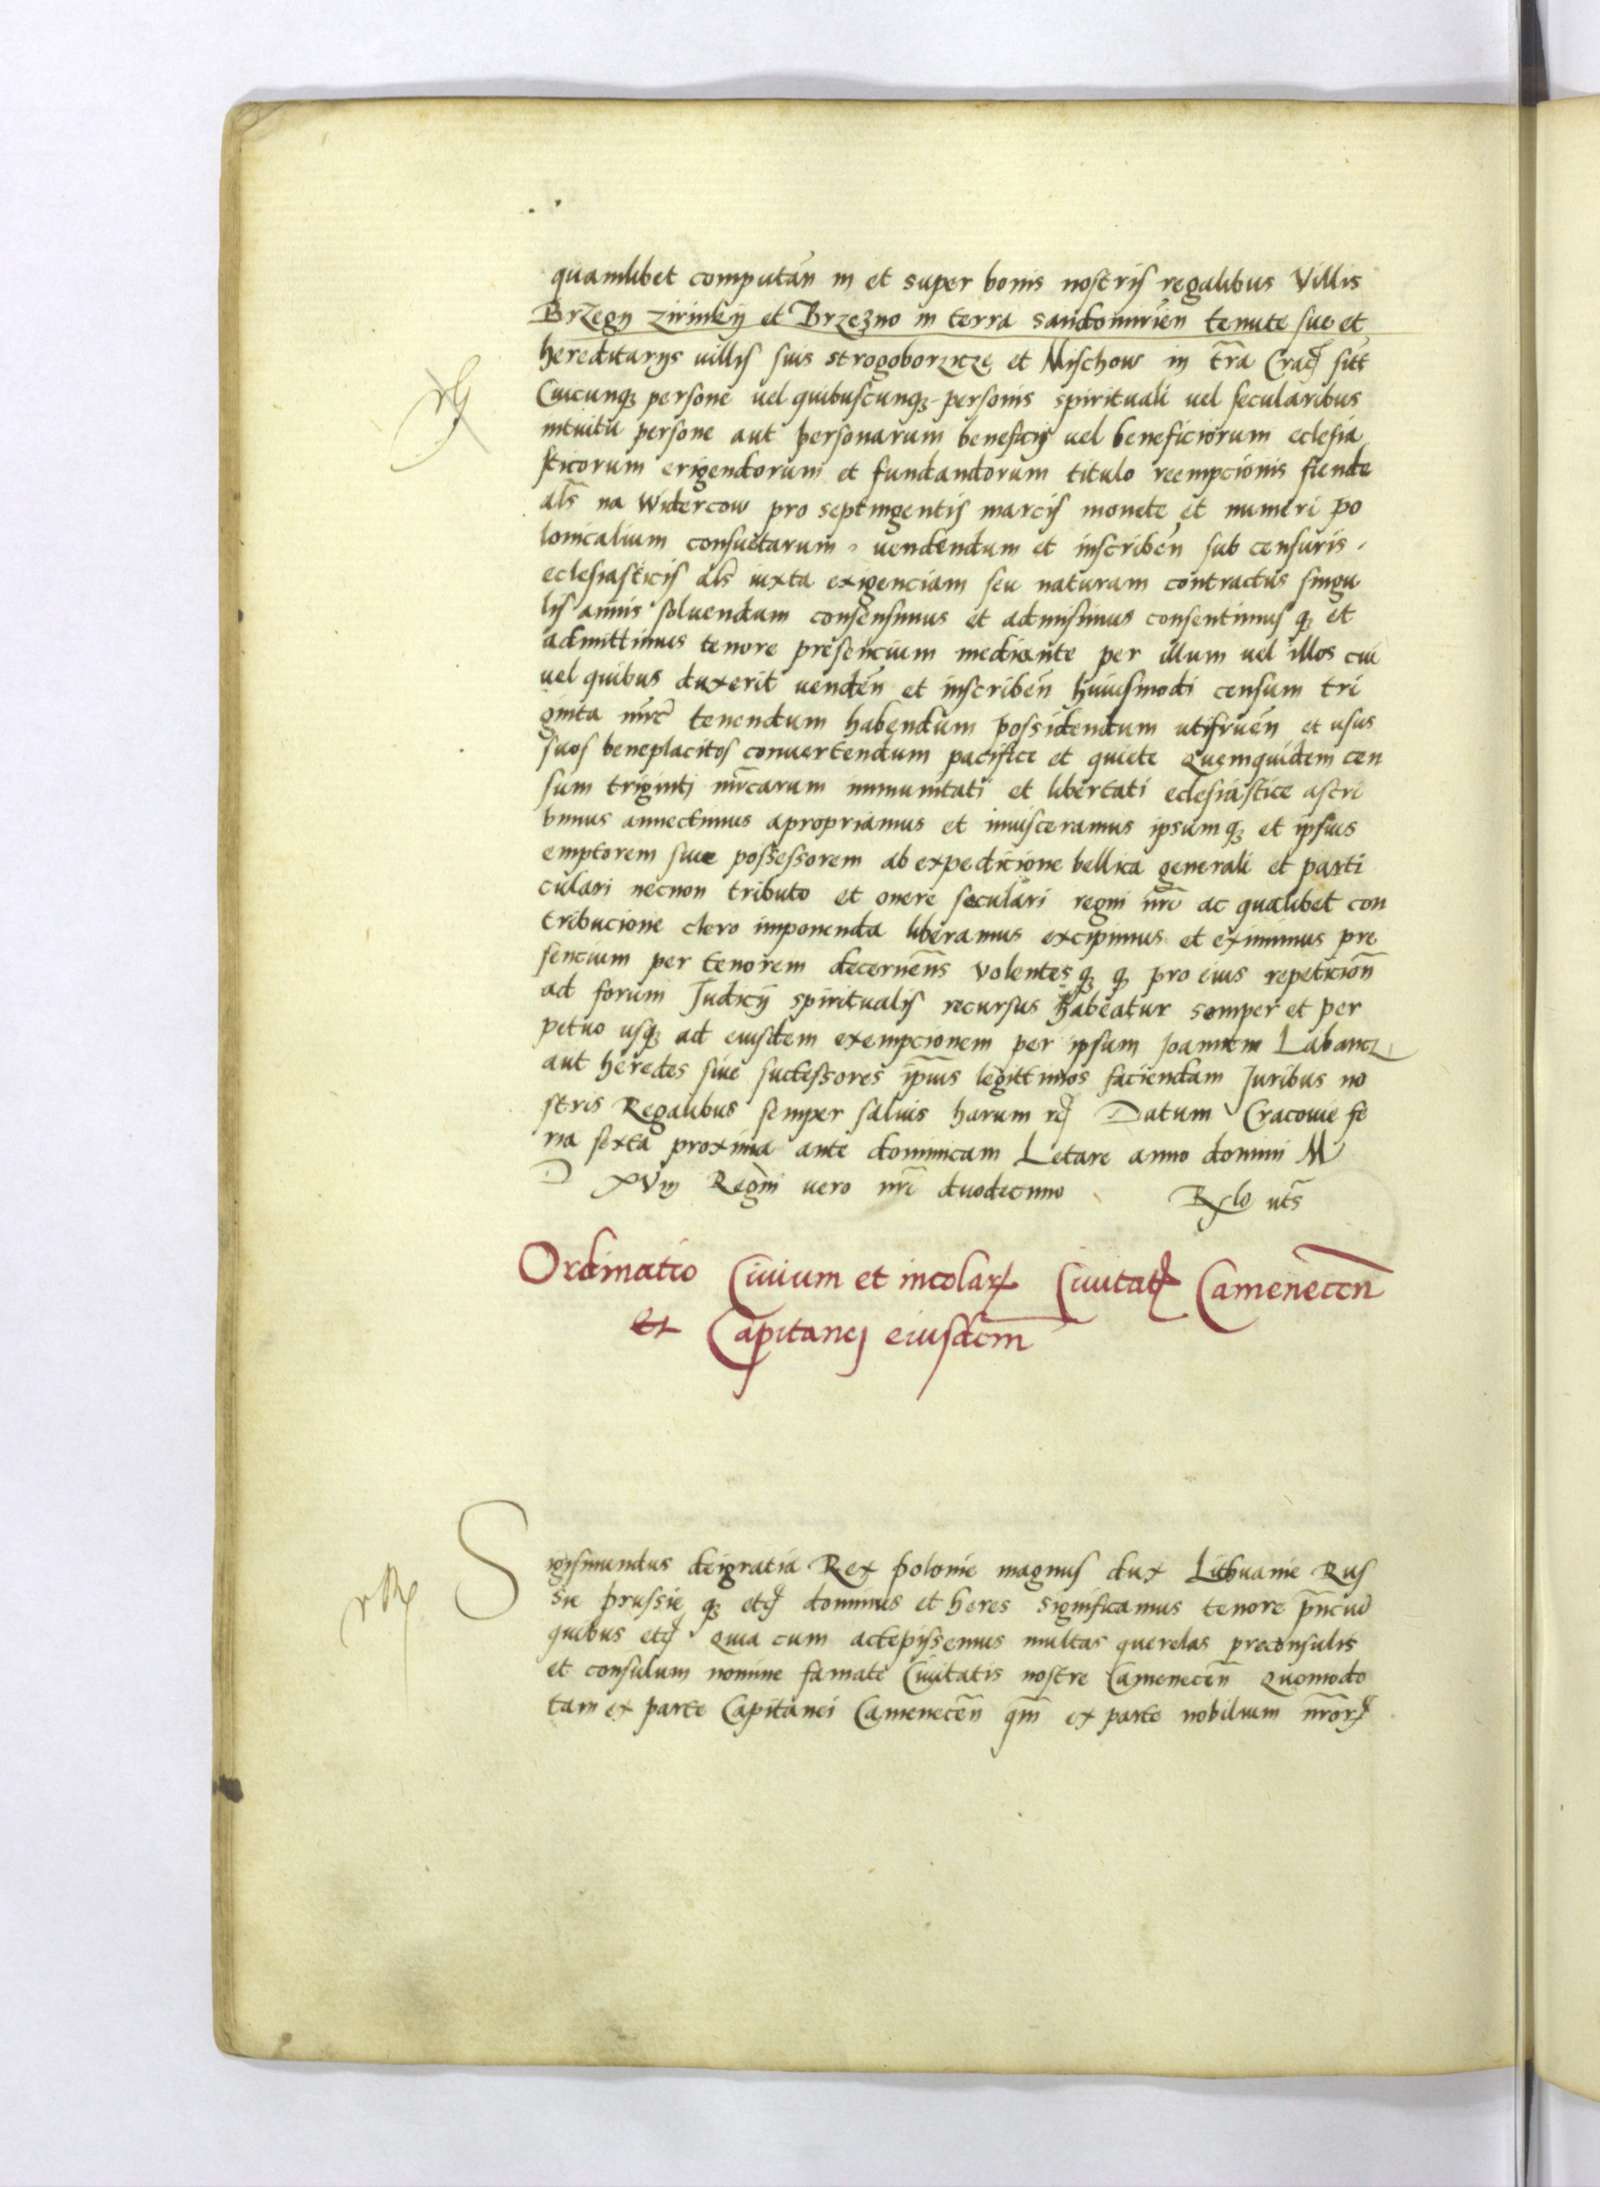 quamlibet computan̄ in et super bonis nostris regalibus Villis
Brzegy zirinkij et Brzezno in terra sandomirien̄ tenute sue et
hereditarijs villis suis strogoborzicze et Mischow in t̄ra Cracꝫ sitt
Cuicunqꝫ persone vel quibuscunqꝫ personis spirituali vel secularibus
intuitu persone aut personarum beneficij vel beneficiorum eclesia
sticorum erigendorum et fundandorum titulo reempcionis fiende
als̄ na widercow pro septingentis marcis monete et numeri po
lonicalium consuetarum vendendum et inscriben̄ sub censuris
eclesiasticis als̄ iuxta exigenciam seu naturam contractus singu
lis annis soluendam consensimus et admisimus consentimusqꝫ et
admittimus tenore presencium mediante per illum vel illos cui
vel quibus duxerit venden̄ et inscriben̄ huiusmodi censum tri
ginta mr̄c tenendum habendum possidendum utifruen̄ et usus
suos beneplacitos convertendum pacifice et quiete Quemquidem cen
sum triginti mr̄carum immunitati et libertati eclesiastice ascri
bimus annectimus apropriamus et invisceramus ipsumqꝫ et ipsius
emptorem sive possessorem ab expedicione bellica generali et parti
culari necnon tributo et onere seculari regni nr̄i ac qualibet con
tribucione clero imponenda liberamus excipimus et eximimus pre
sencium per tenorem decernen̄s volentesqꝫ qꝫ pro eius repeticion̄
ad forum Judicij spiritualis recursus habeatur semper et per
petuo usqꝫ ad eiusdem exempcionem per ipsum Joannem Labancz
aut heredes sive successores ip̄ius legittimos faciendam Juribus no
stris Regalibus semper salvis harum rcꝫ Datum Cracovie fe
ria sexta proxima ante dominicam Letare anno domini M
D XViij Regni vero nr̄i duodecimo Rxlo ut s̄
Ordinatio Civium et incolarꝝ Civitatꝭ Camenecen̄
Et Capitanej eiusdem
Sigismundus dei gratia Rex polonie magnus dux Lithuanie Rus
sie prussie qꝫ etcꝫ dominus et heres significamus tenore pn̄ciū
quibus etcꝫ Quia cum accepissemus multas querelas preconsulis
et consulum nomine famate Civitatis nostre Camenecen̄ Quomodo
tam ex parte Capitanei Camenecen̄ qm̄ ex parte nobilium nr̄orꝝ